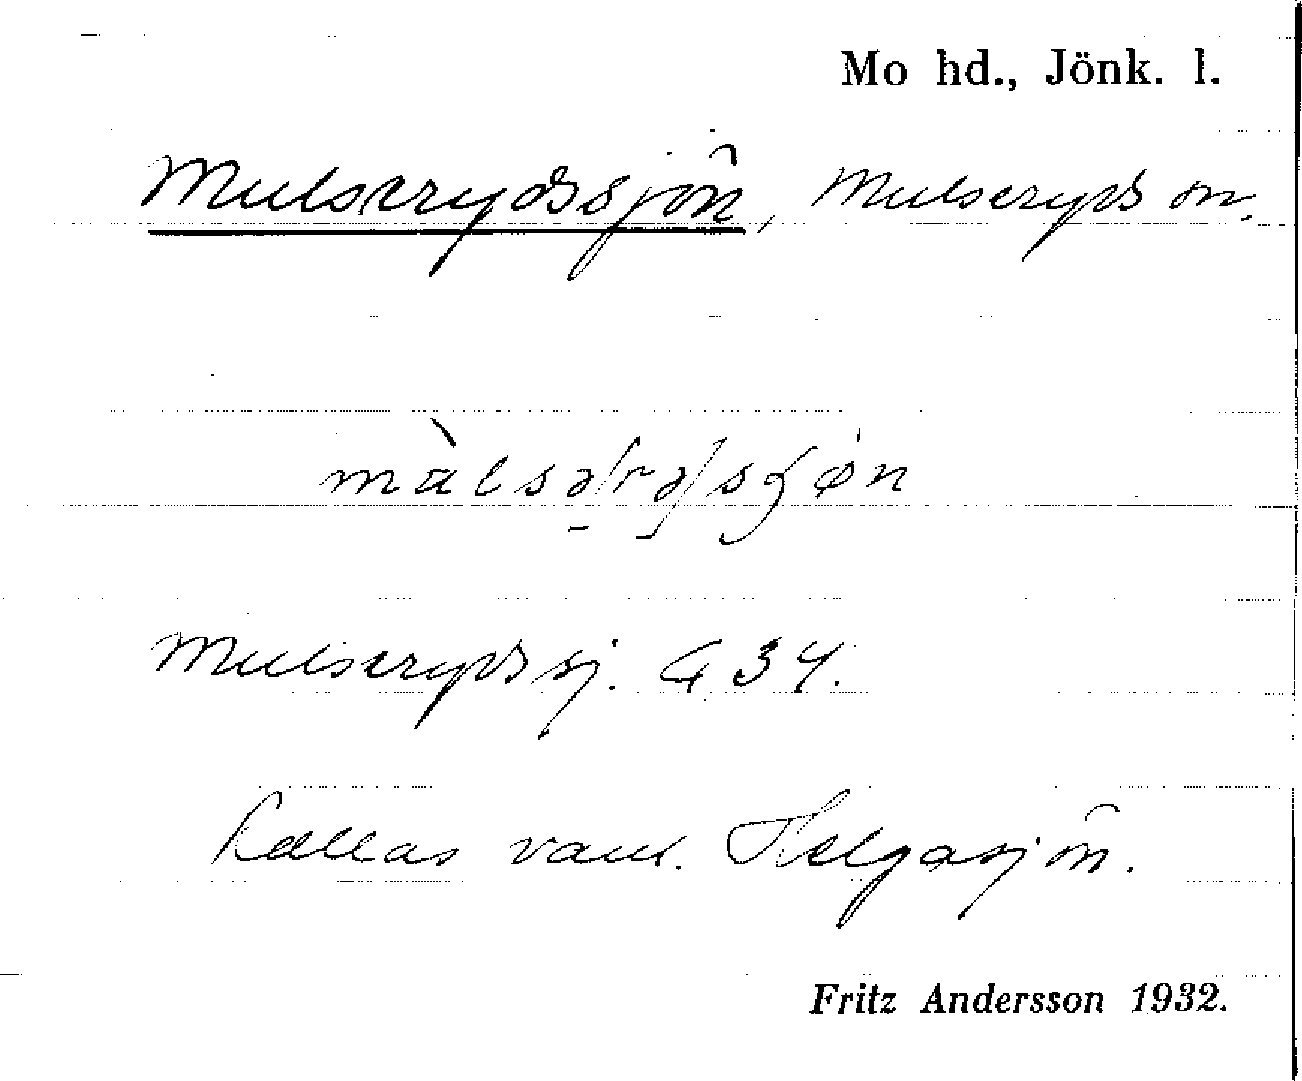 Mo hd., Jönk. l.
Mulserydssjön, Mulseryds sn.
Mulserydssj. G 34.
Kallas vanl. Helgasjön.
Fritz Andersson 1932.